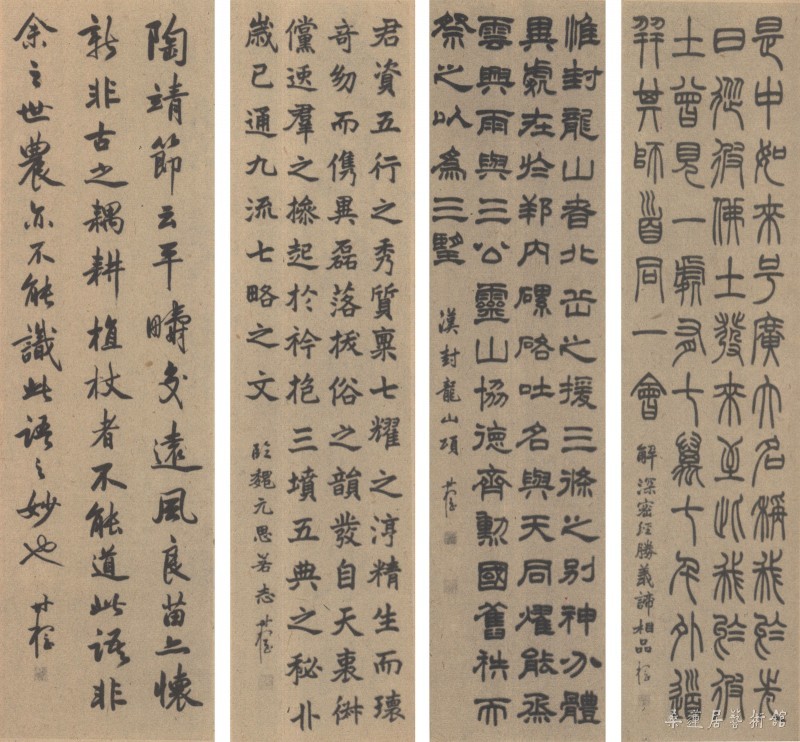 是中如來号廣大名稱我於先
日從彼佛土發來至此我於彼
土曾見一處有七萬七千外道
并其師首同一會
解深密經勝義諦相品
惟封龍山者北岳之援三條之別神分體
異處在於邦內磥硌吐名與天同燿能烝
雲興雨與三公靈山協德齊勳國舊秩而
祭之以為三望
漢封龍山頌
君資五行之秀質稟七耀之淳精生而瓌
奇幼而儁異磊落拔俗之韻發自天衷俶
儻逸羣之操起於衿抱三墳五典之秘
歲已通九流七略之文
臨魏元思若志
陶靖節云平疇交遠風良苗亦懷
新非古之耦耕植杖者不能道此語非
余之世農亦不能識此語之妙也
桑蓮居藝術館